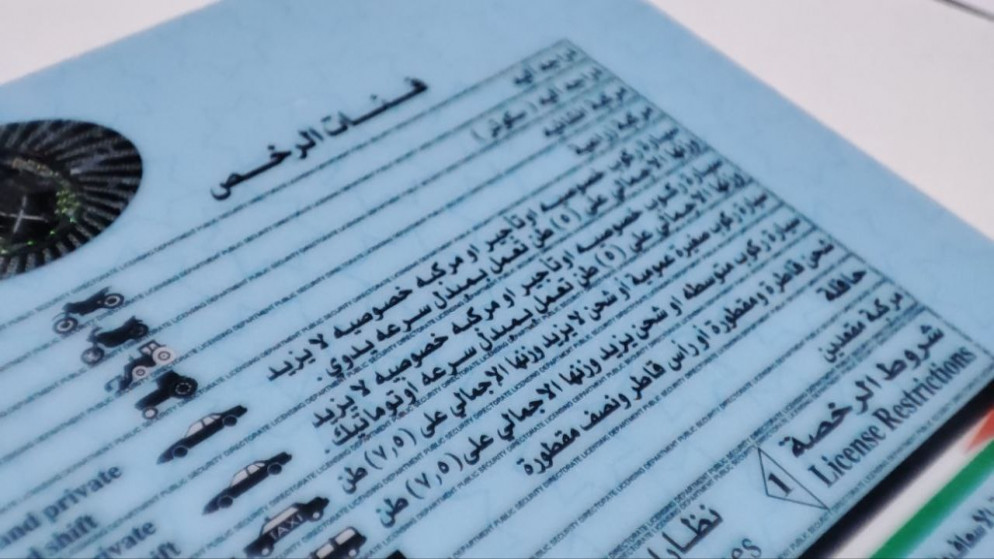 فئات الرخص
دراجه آليه
دراجه آليه (سكوتر)
مركبة انشائيه
مركبة زراعية
سيارة ركوب خصوصيه او تاجير او مركبه خصوصيه لا يزيد
وزنها الاجمالي على (٥) طن تعمل بمبدل سرعه يدوي.
سيارة ركوب خصوصيه او تاجير او مركبه خصوصيه لا يزيد
وزنها الاجمالي على (٥) طن تعمل بمبدل سرعه اوتوماتيك
سيارة ركوب صغيرة عمومية او شحن لا يزيد وزنها الاجمالي على (٧,٥) طن
سيارة ركوب متوسطه او شحن يزيد وزنها الاجمالي على (٧,٥) طن
شحن قاطرة ومقطورة أو رأس قاطر ونصف مقطورة
حافلة
مركبة مقعدين
and private
d shift
private
ift
TAXI
شروط الرخصة
License Restrictions
1
نظارا
es